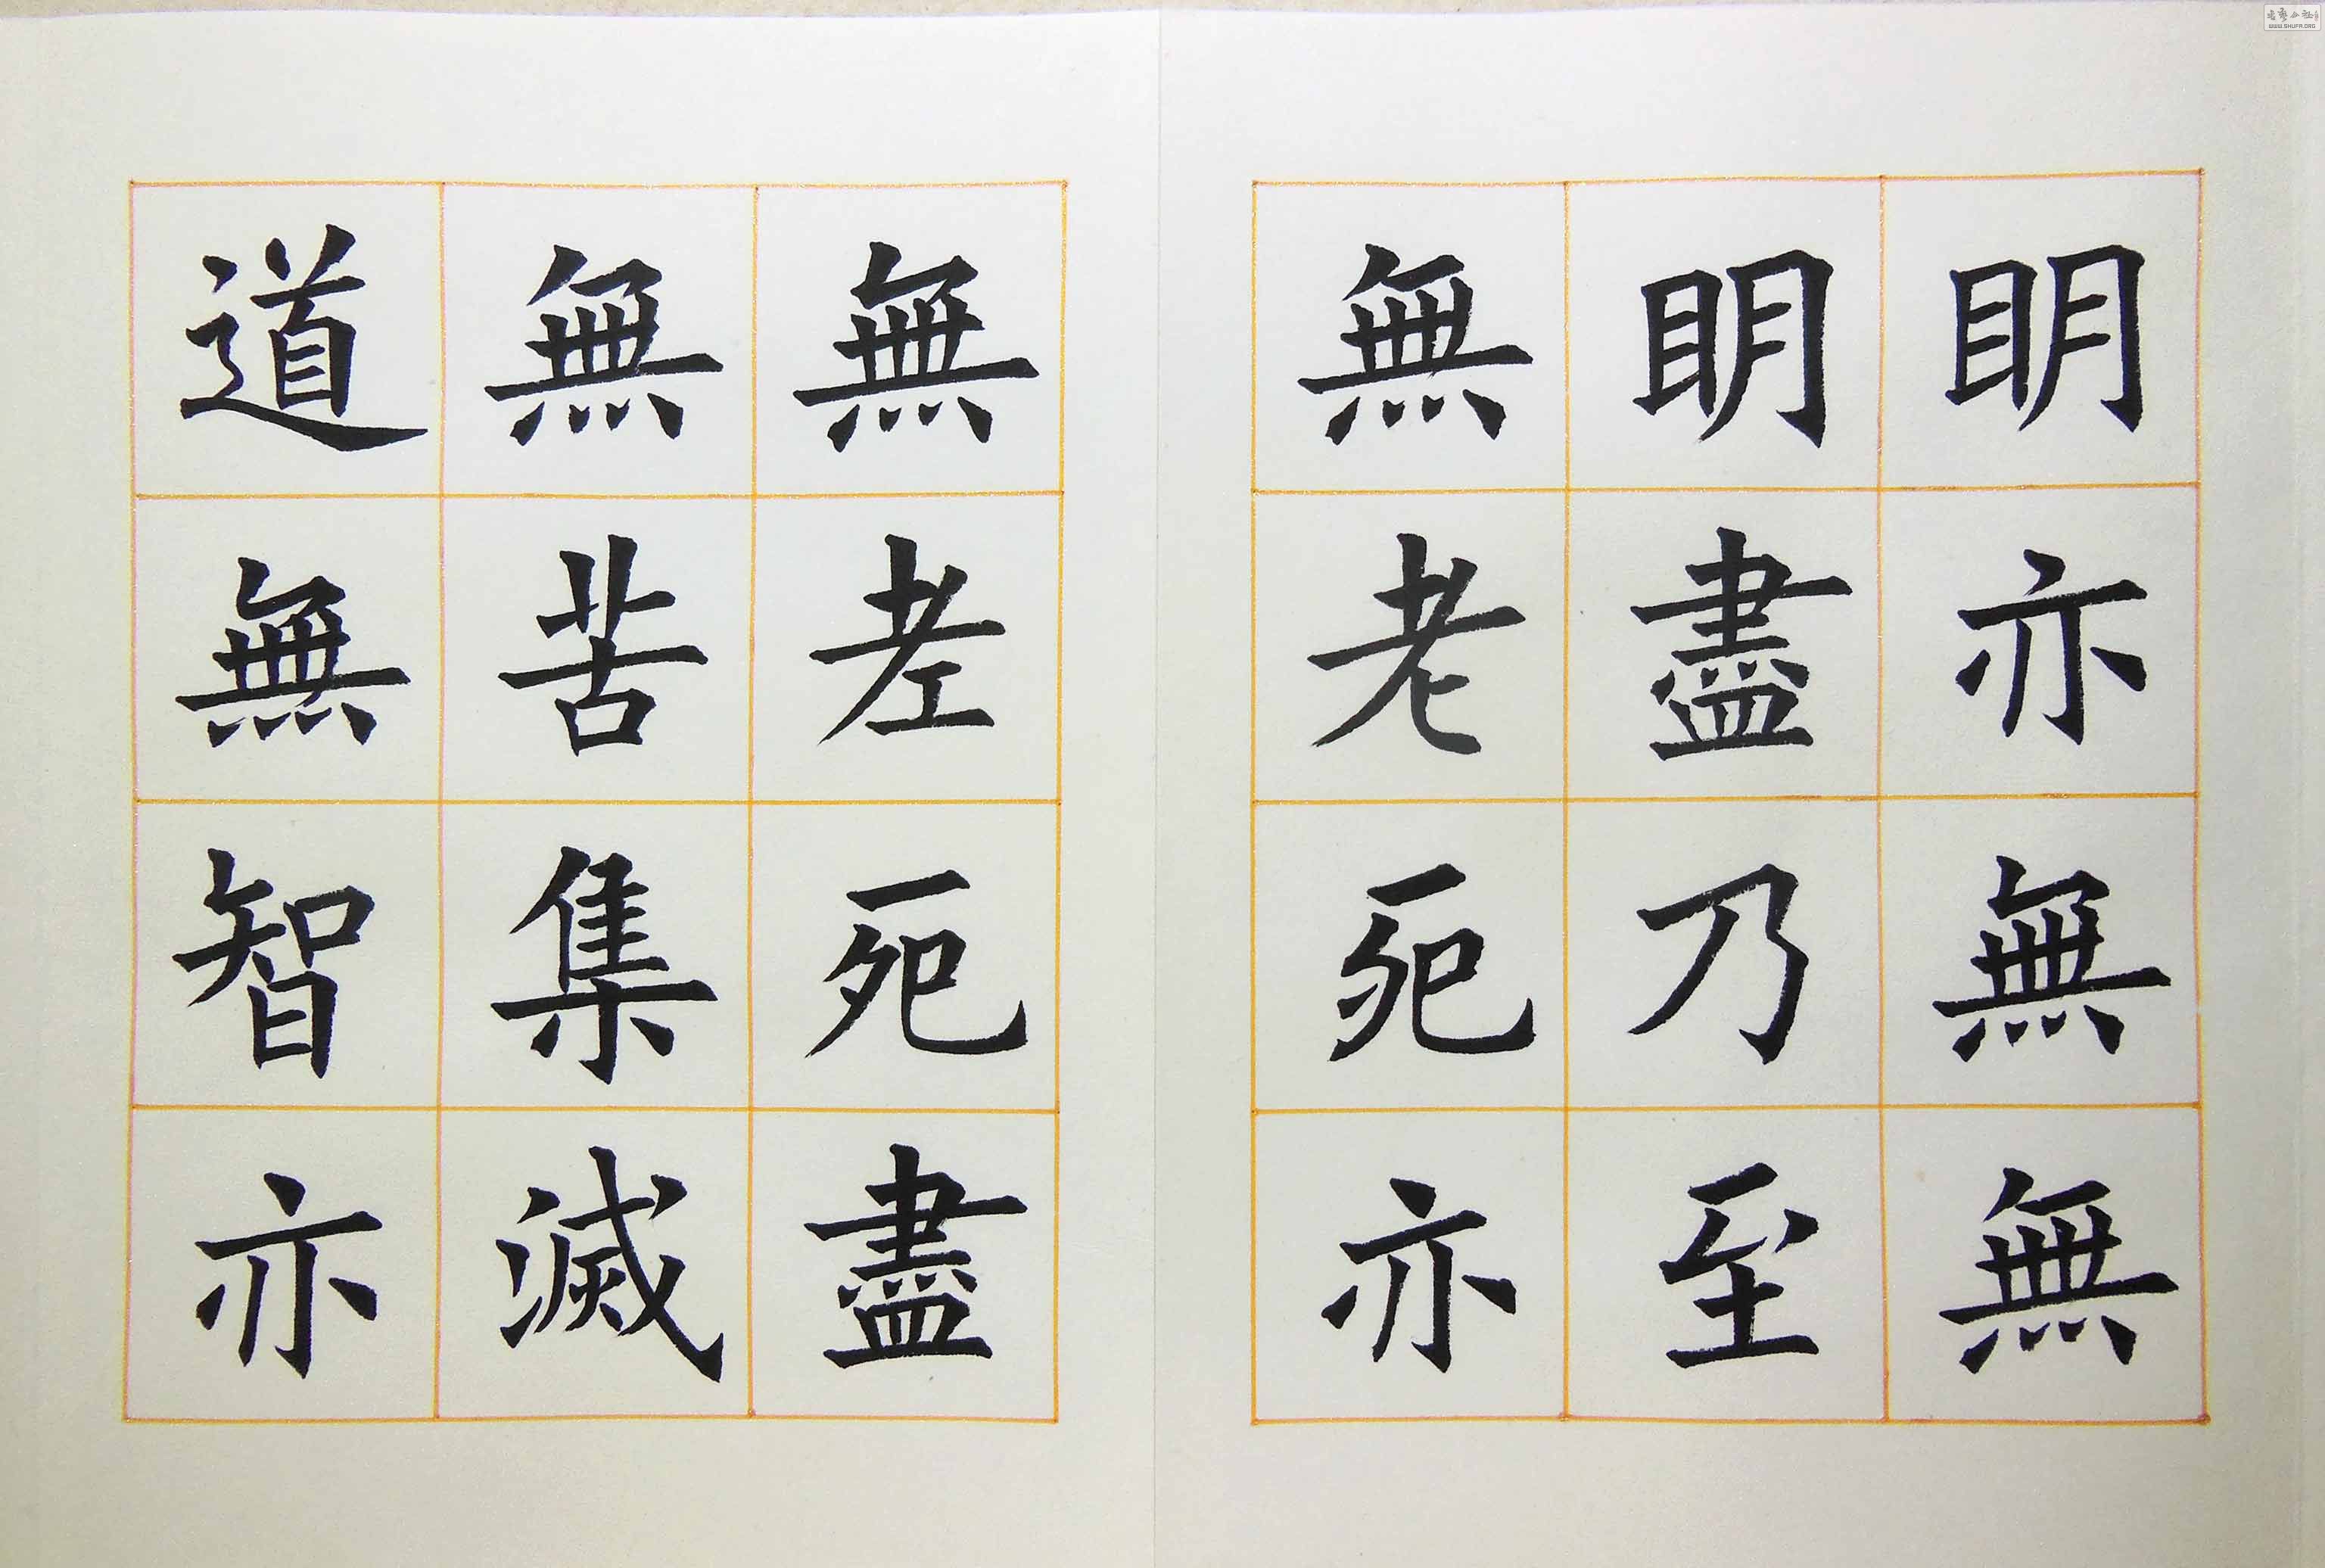 明亦無無
明盡乃至
無老死亦
無老死盡
無苦集滅
道無智亦
WWW.SHUFA.ORG